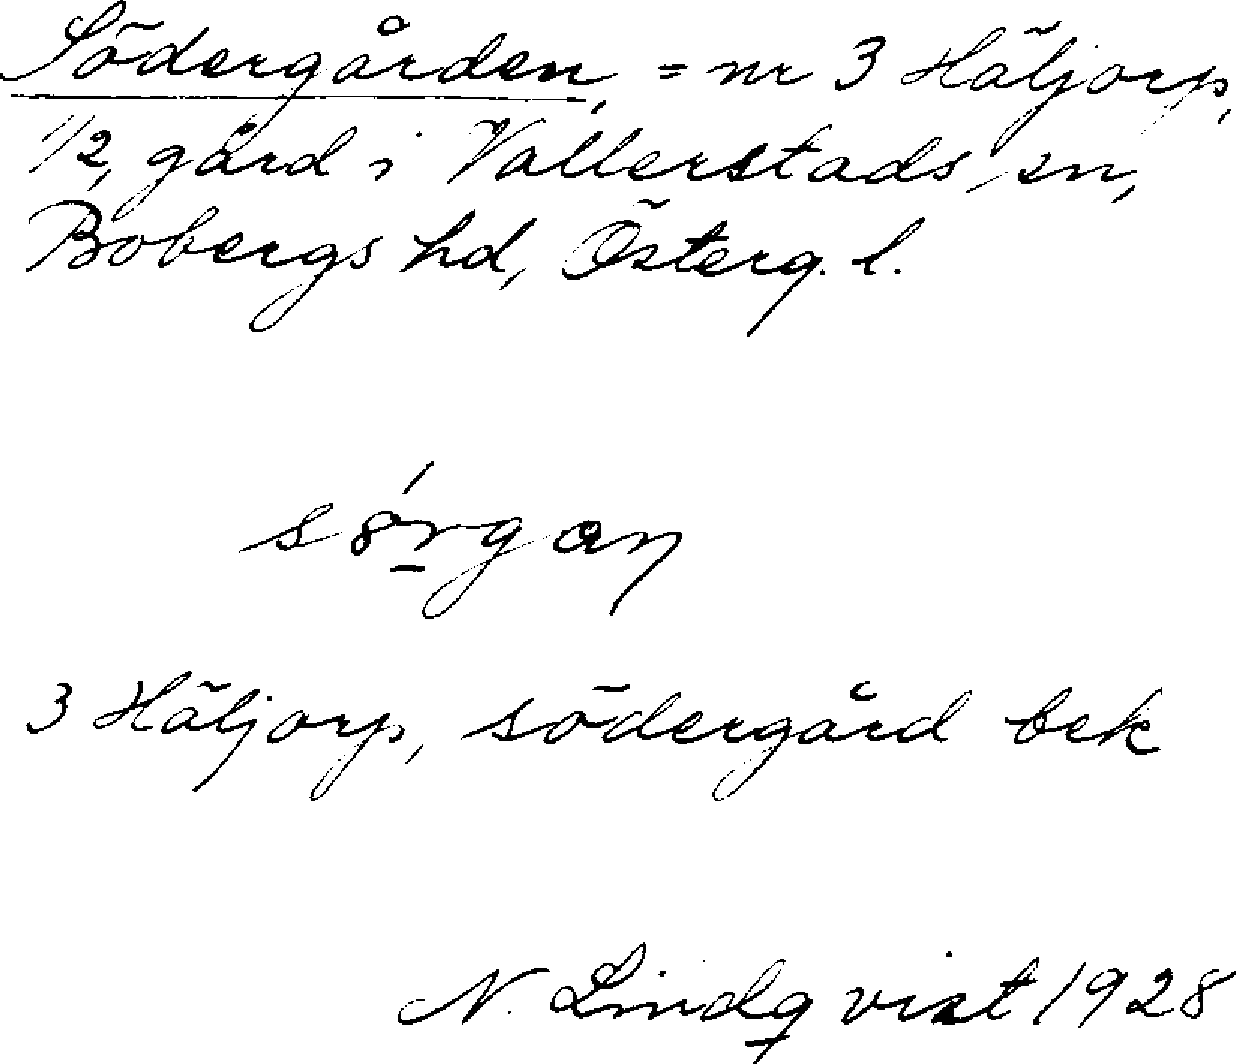 Södergården, = nr 3 Häljorp,
1/2 gård i Vallerstads sn,
Bobergs hd, Österg. l.
3 Häljorp, södergård bek
N. Lindqvist 1928